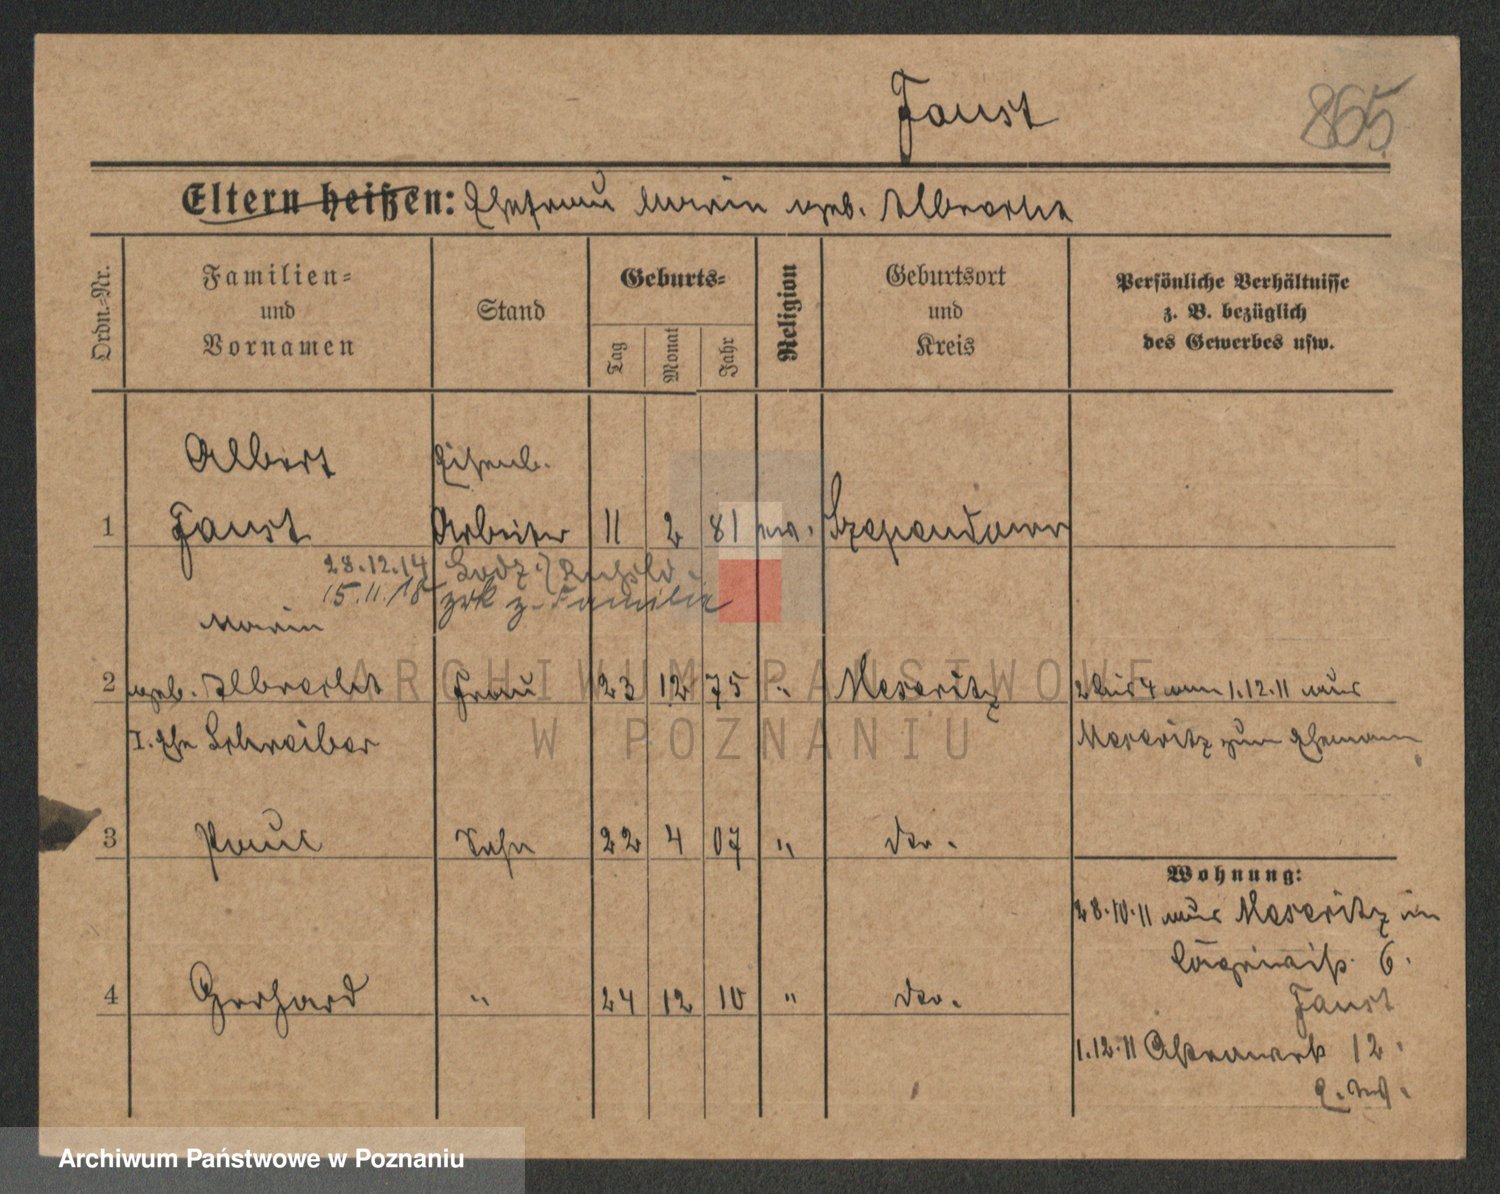 Faust
865
Eltern heißen: Ehefrau Marie geb. Albrecht
Ordn.-Nr.
Familien-
und
Vornamen
Stand
Geburts-
Tag
Monat
Jahr
Religion
Geburtsort
und
Kreis
Persönliche Verhältnisse
z. B. bezüglich
des Gewerbes usw.
Albert Eisenb.
1 Faust Arbeiter 11 2 81 ev. Szczepandowo
28.12.14 Lodz
15.11.18 zrk z. Familie
Marie
2 geb. Albrecht Frau 23 12 75 " Meseritz 2 bis 4 am 1.12.11 aus
I. Ehe Schreiber Meseritz zum Ehemann
3 Paul Sohn 22 4 07 " do.
Wohnung:
28.10.11 aus Meseritz in
6.
4 Gerhard " 24 12 10 " do.
Faust
1.12.11 12.
ARCHIWUM PAŃSTWOWE
W POZNANIU
Archiwum Państwowe w Poznaniu